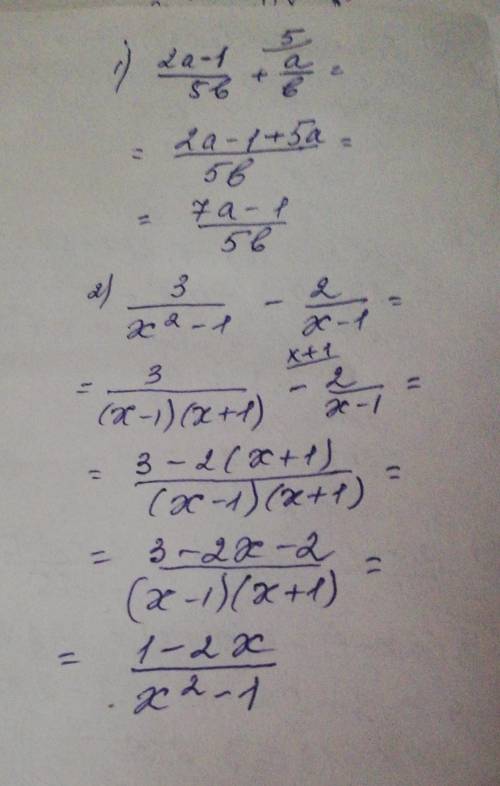 1) (2a-1)/(5b) + ⁵⁄ a/b =
= (2a-1+5a)/(5b) =
= (7a-1)/(5b)
2) 3/(x²-1) - 2/(x-1) =
= 3/((x-1)(x+1)) - ˣ⁺¹⁄ 2/(x-1) =
= (3-2(x+1))/((x-1)(x+1)) =
= (3-2x-2)/((x-1)(x+1)) =
= (1-2x)/(x²-1)